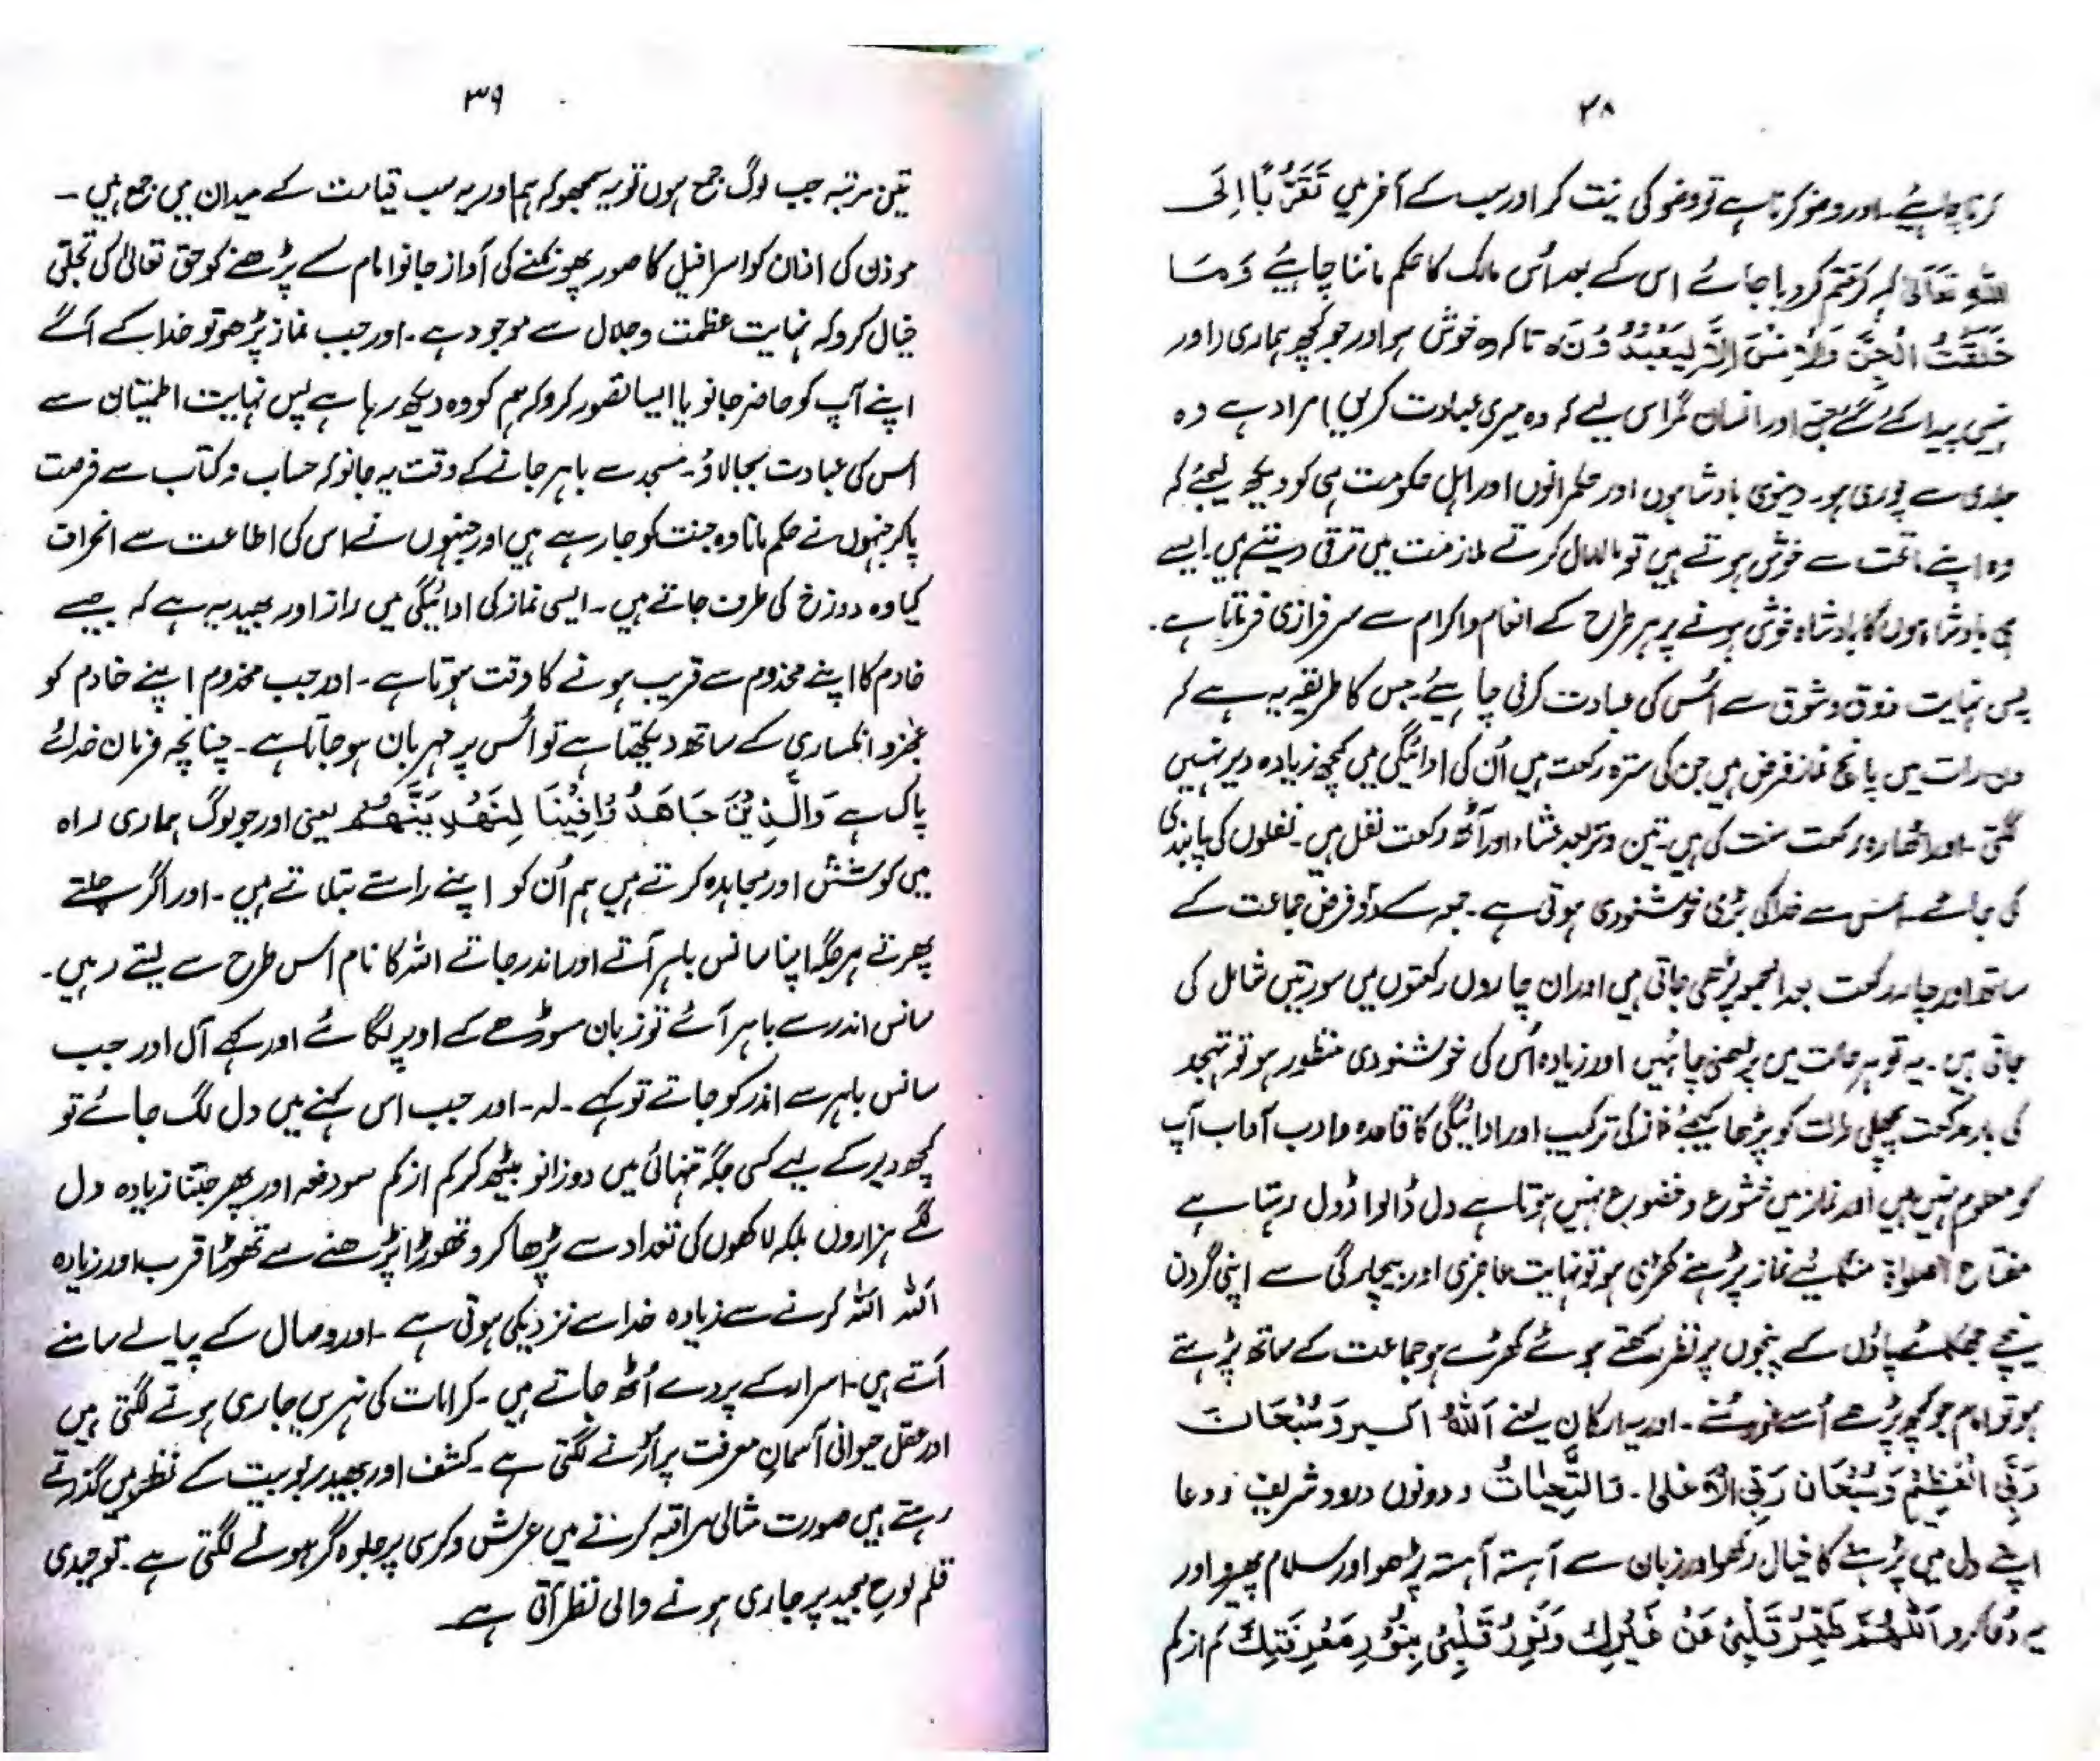 ۳۸
کرنا چاہیئے۔ اور وضو کرتا ہے تو وضو کی نیت کر اور سب کے آخر میں تَقَرُّبًا اِلَی
اللّٰہِ تَعَالٰی کہہ کر ختم کر دیا جائے اس کے بعد اُس مالک کا حکم ماننا چاہیئے وَمَا
خَلَقْتُ الْجِنَّ وَالْاِنْسَ اِلَّا لِیَعْبُدُوْنَ تا کہ وہ خوش ہو اور جو کچھ ہماری (اور
نہیں پیدا کئے گئے جن اور انسان مگر اس لیے کہ وہ میری عبادت کریں) مراد ہے وہ
جلدی سے پوری ہو۔ دینوی بادشاہوں اور حکمرانوں اور اہل حکومت ہی کو دیکھ لیجئے کہ
وہ اپنے ماتحت سے خوش ہوتے ہیں تو مالامال کرتے ملازمت میں ترقی دیتے ہیں ایسے
ہی بادشاہوں کا بادشاہ خوش ہونے پر ہر طرح کے انعام و اکرام سے سرفرازی فرماتا ہے۔
پس نہایت ذوق و شوق سے اُس کی عبادت کرنی چاہیئے جس کا طریقہ یہ ہے کہ
دن رات میں پانچ نماز فرض ہیں جن کی سترہ رکعت ہیں اُن کی ادائیگی میں کچھ زیادہ دیر نہیں
لگتی۔ اور اٹھارہ رکعت سنت کی ہیں۔ تین وتر بعد عشاء اور آٹھ رکعت نفل ہیں۔ نفلوں کی پابندی
کی جائے۔ اس سے خدا کی بڑی خوشنودی ہوتی ہے۔ جمعہ کے دو فرض جماعت کے
ساتھ اور چار رکعت بعد الجمعہ پڑھی جاتی ہیں اور ان چاروں رکعتوں میں سورتیں شامل کی
جاتی ہیں۔ یہ تو ہر حالت میں پڑھنی چاہئیں اور زیادہ اُس کی خوشنودی منظور ہو تو تہجد
کی بارہ رکعت پچھلی رات کو پڑھا کیجئے نماز کی ترکیب اور ادائیگی کا قاعدہ و ادب آداب آپ
کو معلوم نہیں ہیں اور نماز میں خشوع و خضوع نہیں ہوتا ہے دل ڈالوا ڈول رہتا ہے
مفتاح الصلواۃ منگائیے نماز پڑہنے کھڑی ہو تو نہایت عاجزی اور بیچارگی سے اپنی گردن
نیچے جھکائے پاؤں کے پنجوں پر نظر رکھتے ہوئے کھڑے ہو جماعت کے ساتھ پڑہتے
ہو تو امام جو کچھ پڑھے اُسے غور سے سنے۔ اور یہ ارکان یعنے اَللّٰہُ اکبر وَسُبْحَانَ
رَبِّیَ الْعَظِیْمِ وَسُبْحَانَ رَبِّیَ الْاَعْلٰی۔ وَالتَّحِیَّاتُ و دونوں درود شریف و دعا
اپنے دل میں پڑہنے کا خیال رکھو اور زبان سے آہستہ آہستہ پڑھو اور سلام پھیرو اور
یہ دُعا کرو اَللّٰھُمَّ طَھِّرْ قَلْبِیْ عَنْ غَیْرِکَ وَنَوِّرْ قَلْبِیْ بِنُوْرِ مَعْرِفَتِکَ کم از کم
۳۹
تین مرتبہ جب لوگ جمع ہوں تو یہ سمجھو کہ ہم اور یہ سب قیامت کے میدان میں جمع ہیں۔
موذن کی اذان کو اسرافیل کا صور پھونکنے کی آواز جانو امام کے پڑھنے کو حق تعالیٰ کی تجلّی
خیال کرو کہ نہایت عظمت و جلال سے موجود ہے۔ اور جب نماز پڑھو تو خدا کے آگے
اپنے آپ کو حاضر جانو یا ایسا تصور کرو کہ ہم کو وہ دیکھ رہا ہے پس نہایت اطمینان سے
اُس کی عبادت بجا لاؤ۔ مسجد سے باہر جانے کے وقت یہ جانو کہ حساب و کتاب سے فرصت
پا کر جنہوں نے حکم مانا وہ جنت کو جا رہے ہیں اور جنہوں نے اس کی اطاعت سے انحراف
کیا وہ دوزخ کی طرف جاتے ہیں۔ ایسی نماز کی ادائیگی میں راز اور بھید یہ ہے کہ جیسے
خادم کا اپنے مخدوم سے قریب ہونے کا وقت ہوتا ہے۔ اور جب مخدوم اپنے خادم کو
عجز و انکساری کے ساتھ دیکھتا ہے تو اُس پر مہربان ہو جاتا ہے۔ چنانچہ فرمان خدائے
پاک ہے وَالَّذِیْنَ جَاھَدُوْا فِیْنَا لِنَھْدِیَنَّھُمْ یعنی اور جو لوگ ہماری راہ
میں کوشش اور مجاہدہ کرتے ہیں ہم اُن کو اپنے راستے بتلاتے ہیں۔ اور اگر چلتے
پھرتے ہر جگہ اپنا سانس باہر آتے اور اندر جاتے اللہ کا نام اس طرح سے لیتے رہیں۔
سانس اندر سے باہر آئے تو زبان سوڑھے کے اوپر لگائے اور کہے آل اور جب
سانس باہر سے اندر کو جاتے تو کہے۔ لہ۔ اور جب اس کہنے میں دل لگ جائے تو
کچھ دیر کے لیے کسی جگہ تنہائی میں دوزانو بیٹھ کر کم از کم سو دفعہ اور پھر جتنا زیادہ دل
لگے ہزاروں بلکہ لاکھوں کی تعداد سے پڑھا کرو تھوڑا پڑھنے سے تھوڑا قرب اور زیادہ
اللّٰہ اللّٰہ کرنے سے زیادہ خدا سے نزدیکی ہوتی ہے۔ اور وصال کے پیالے سامنے
آتے ہیں۔ اسرار کے پردے اُٹھ جاتے ہیں۔ کرامات کی نہریں جاری ہونے لگتی ہیں
اور عقل حیوانی آسمانِ معرفت پر اُڑنے لگتی ہے۔ کشف اور بھید ربوبیت کے نظروں میں گذرتے
رہتے ہیں صورت مثالی مراقبہ کرنے میں عرش و کرسی پر جلوہ گر ہونے لگتی ہے۔ توحیدی
قلم لوح مجید پر جاری ہونے والی نظر آتی ہے